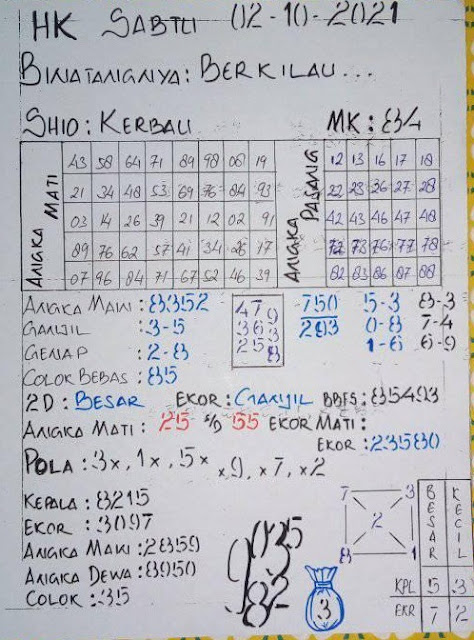 HK SABTU 02-10-2021
BINATANGNYA: BERKILAU...
SHIO: KERBAU MK: 84
ANGKA MATI
43 58 64 71 89 98 08 19
21 34 48 53 69 76 84 93
03 14 26 39 21 12 02 91
89 76 62 57 41 34 26 17
07 96 84 71 67 52 46 39
ANGKA PASANG
12 13 16 17 18
22 23 26 27 28
42 43 46 47 48
72 73 76 77 78
82 83 86 87 88
ANGKA MAIN: 8352
GANJIL : 3-5
GENAP : 2-8
COLOK BEBAS: 85
479
363
258
8
750
293
5-3
0-8
1-6
8-3
7-4
6-9
2D: BESAR EKOR: GANJIL BBFS: 835493
ANGKA MATI: 25 S/D 55 EKOR MATI:
EKOR: 23580
POLA: 3x, 1x, 5x x9, x7, x2
KEPALA: 8215
EKOR: 3097
ANGKA MAIN: 2859
ANGKA DEWA: 8950
COLOK: 35
7 3
2
8 1
3
BESAR KECIL
KPL 5 3
EKR 7 2